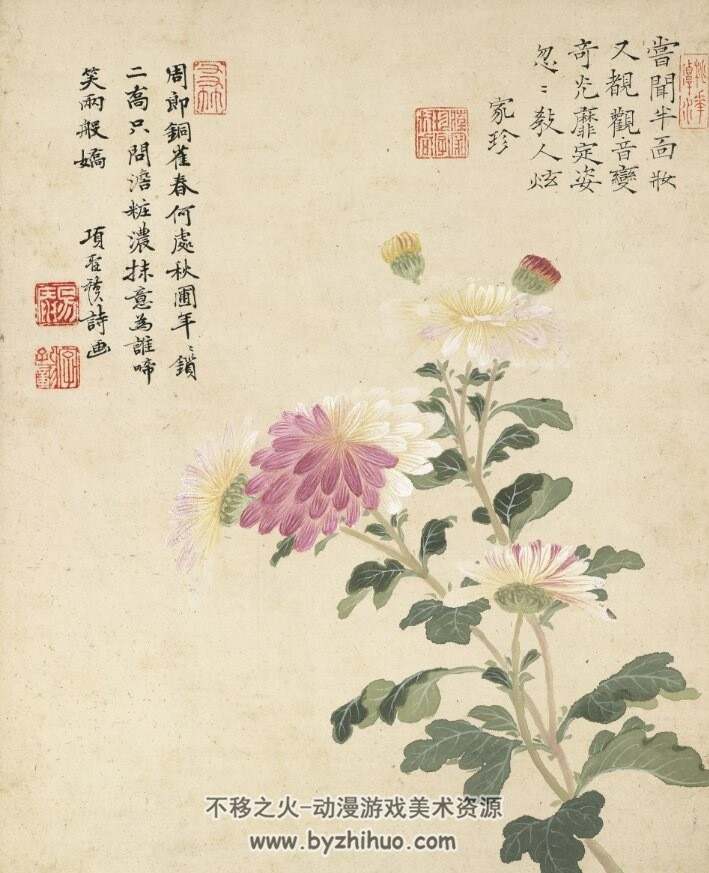 嘗聞半面妝
又覩觀音變
奇光靡定姿
忽〻教人炫
家珍
周郎銅雀春何處秋圃年〻鎖
二喬只問澹粧濃抹意為誰啼
笑兩般嬌
項聖謨詩画
不移之火-动漫游戏美术资源
www.byzhihuo.com